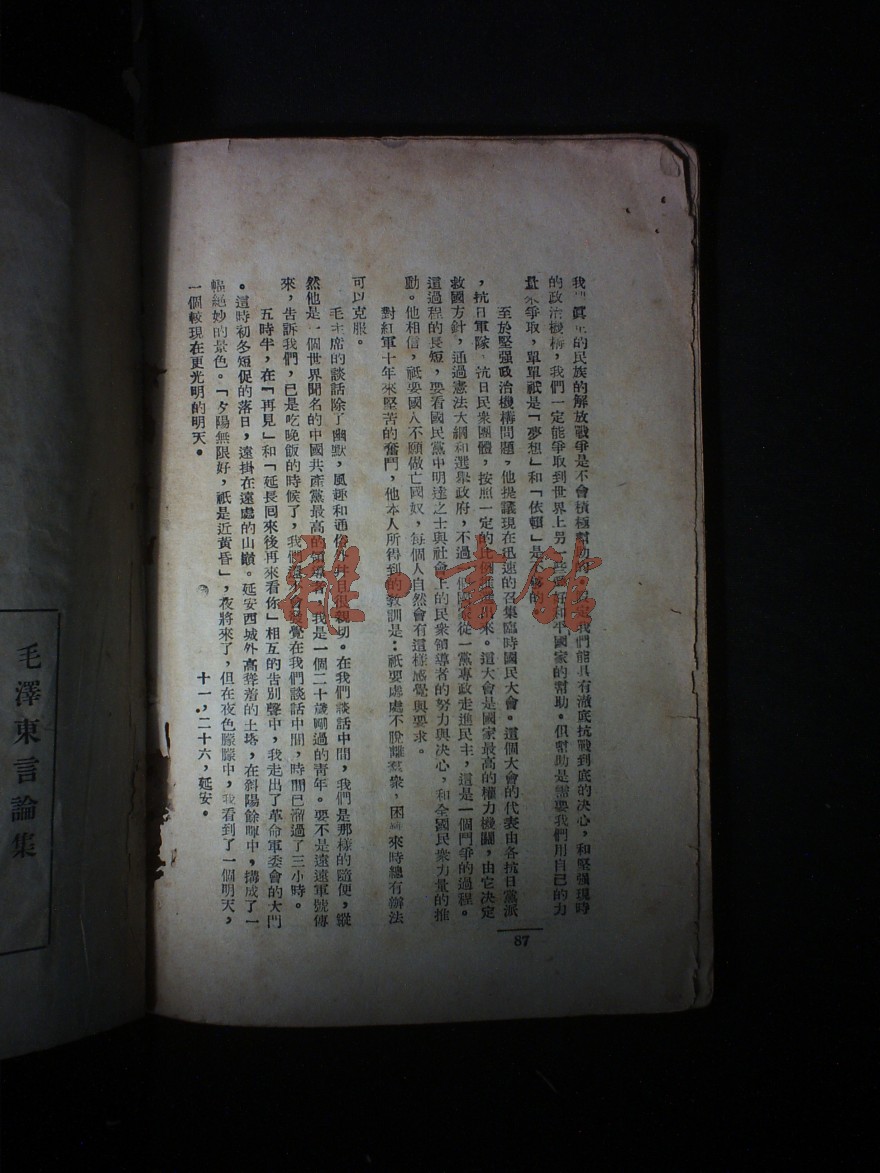 我們眞正的民族的解放戰爭是不會積極幫助的
我們能具有澈底抗戰到底的决心，和堅强現時
的政治機構，我們一定能爭取到世界上另一些
和平國家的幫助。但幫助是需要我們用自己的力
量來爭取，單單祇是「夢想」和「依賴」是不夠的。
至於堅强政治機構問題，他提議現在迅速的召集臨時國民大會。這個大會的代表由各抗日黨派
，抗日軍隊，抗日民衆團體，按照一定的比例推選出來。這大會是國家最高的權力機關，由它决定
救國方針，通過憲法大綱和選舉政府，不過一個國家從一黨專政走進民主，這是一個鬥爭的過程。
這過程的長短，要看國民黨中明達之士與社會上的民衆領導者的努力與决心，和全國民衆力量的推
動。他相信，祇要國人不願做亡國奴，每個人自然會有這樣感覺與要求。
對紅軍十年來堅苦的奮鬥，他本人所得到的敎訓是：祇要處處不脫離羣衆，困難來時總有辦法
可以克服。
毛主席的談話除了幽默，風趣和通俗外并且很親切。在我們談話中間，我們是那樣的隨便，縱
然他是一個世界聞名的中國共產黨最高的領導者，我是一個二十歲嘲過的靑年。要不是遠遠軍號傳
來，告訴我們，已是吃晚飯的時候了，我們還不會發覺在我們談話中間，時間已溜過了三小時。
五時半，在「再見」和「延長回來後再來看你」相互的告别聲中，我走出了革命軍委會的大門
。這時初冬短促的落日，遠掛在遠處的山巓。延安西城外高聳着的土塔，在斜陽餘暉中，搆成了一
幅絕妙的景色。「夕陽無限好，祇是近黃昏」，夜將來了，但在夜色朦朧中，我看到了一個明天，
一個較現在更光明的明天。
十一，二十六，延安。
87
毛澤東言論集
雅·書館